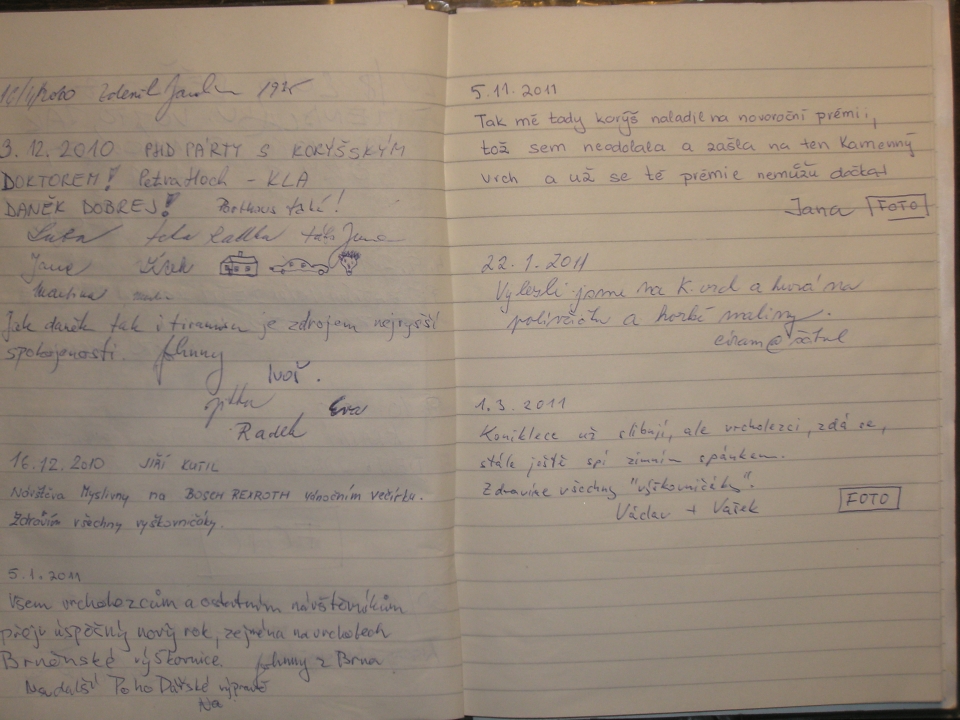 3.12.2010 PHD PÁRTY S KORÝŠSKÝM
DOKTOREM! Petra Hoch - KLA
DANĚK DOBREJ! také!
Radka Jana
Jana
Martina
Jak daněk tak i tiramisu je zdrojem nejvyšší
spokojenosti. Johnny
Ivoš.
Jitka Eva
Radek
16.12.2010 JIŘÍ KUTIL
Návštěva Myslivny na BOSCH REXROTH vánočním večírku.
Zdravím všechny vyškovničáky.
5.1.2011
Všem vrcholezcům a ostatním návštěvníkům
přeju úspěšný nový rok, zejména na vrcholech
Brněnské výškovnice. Johnny z Brna
Na další Poho výpravě
Na
5.11.2011
Tak mě tady korýš naladil na novoroční prémii,
tož sem neodolala a zašla na ten Kamenný
vrch a už se té prémie nemůžu dočkat
Jana FOTO
22.1.2011
Vylezli jsme na K.vrch a hurá na
polívčičku a horké maliny.
1.3.2011
Koniklece už slibují, ale vrcholezci, zdá se,
stále ještě spí zimním spánkem.
Zdravíme všechny "vyškovničáky".
Václav + Vašek FOTO